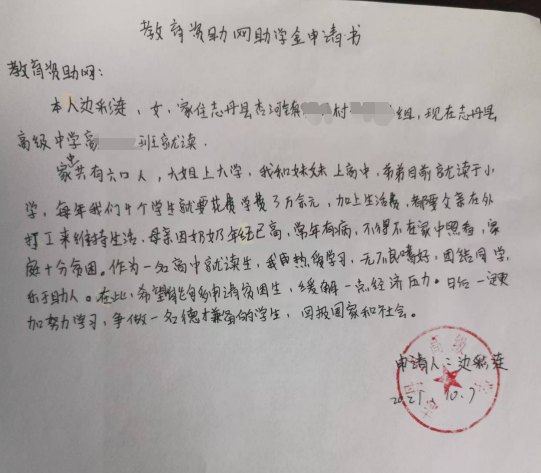 教育资助网助学金申请书
教育资助网：
本人边彩莲，女，家住志丹县杏河镇村组，现在志丹县
高级中学高班就读。
家中共有六口人，大姐上大学，我和妹妹上高中，弟弟目前就读于小
学，每年我们4个学生就要花费学费3万余元，加上生活费，都要父亲在外
打工来维持生活，母亲因奶奶年纪已高，常年有病，不得不在家中照看，家
庭十分贫困。作为一名高中就读生，我热爱学习，无不良嗜好，团结同学，
乐于助人。在此，希望能够申请贫困生，缓解一点经济压力。日后一定更
加努力学习，争做一名德才兼备的学生，回报国家和社会。
申请人：边彩莲
2021.10.7